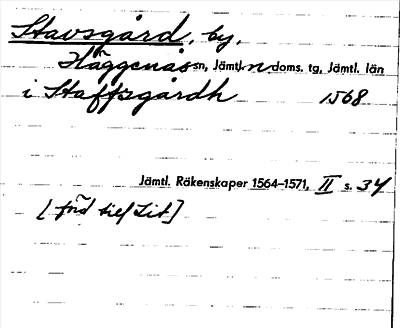 Stavsgård, by,
Häggenås sn, Jämtl. n doms. tg, Jämtl. län
i Staffzgårdh 1568
Jämtl. Räkenskaper 1564–1571, II s. 34
[förd till Lit]